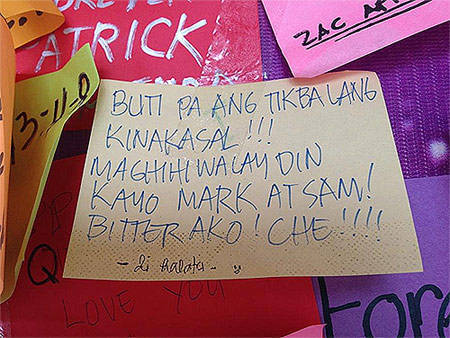 PATRICK
ZAC
13-11-0
BUTI PA ANG TIKBALANG
KINAKASAL!!!
MAGHIHIWALAY DIN
KAYO MARK AT SAM!
BITTER AKO! CHE!!!!
- di halata -
LOVE YOU
fore